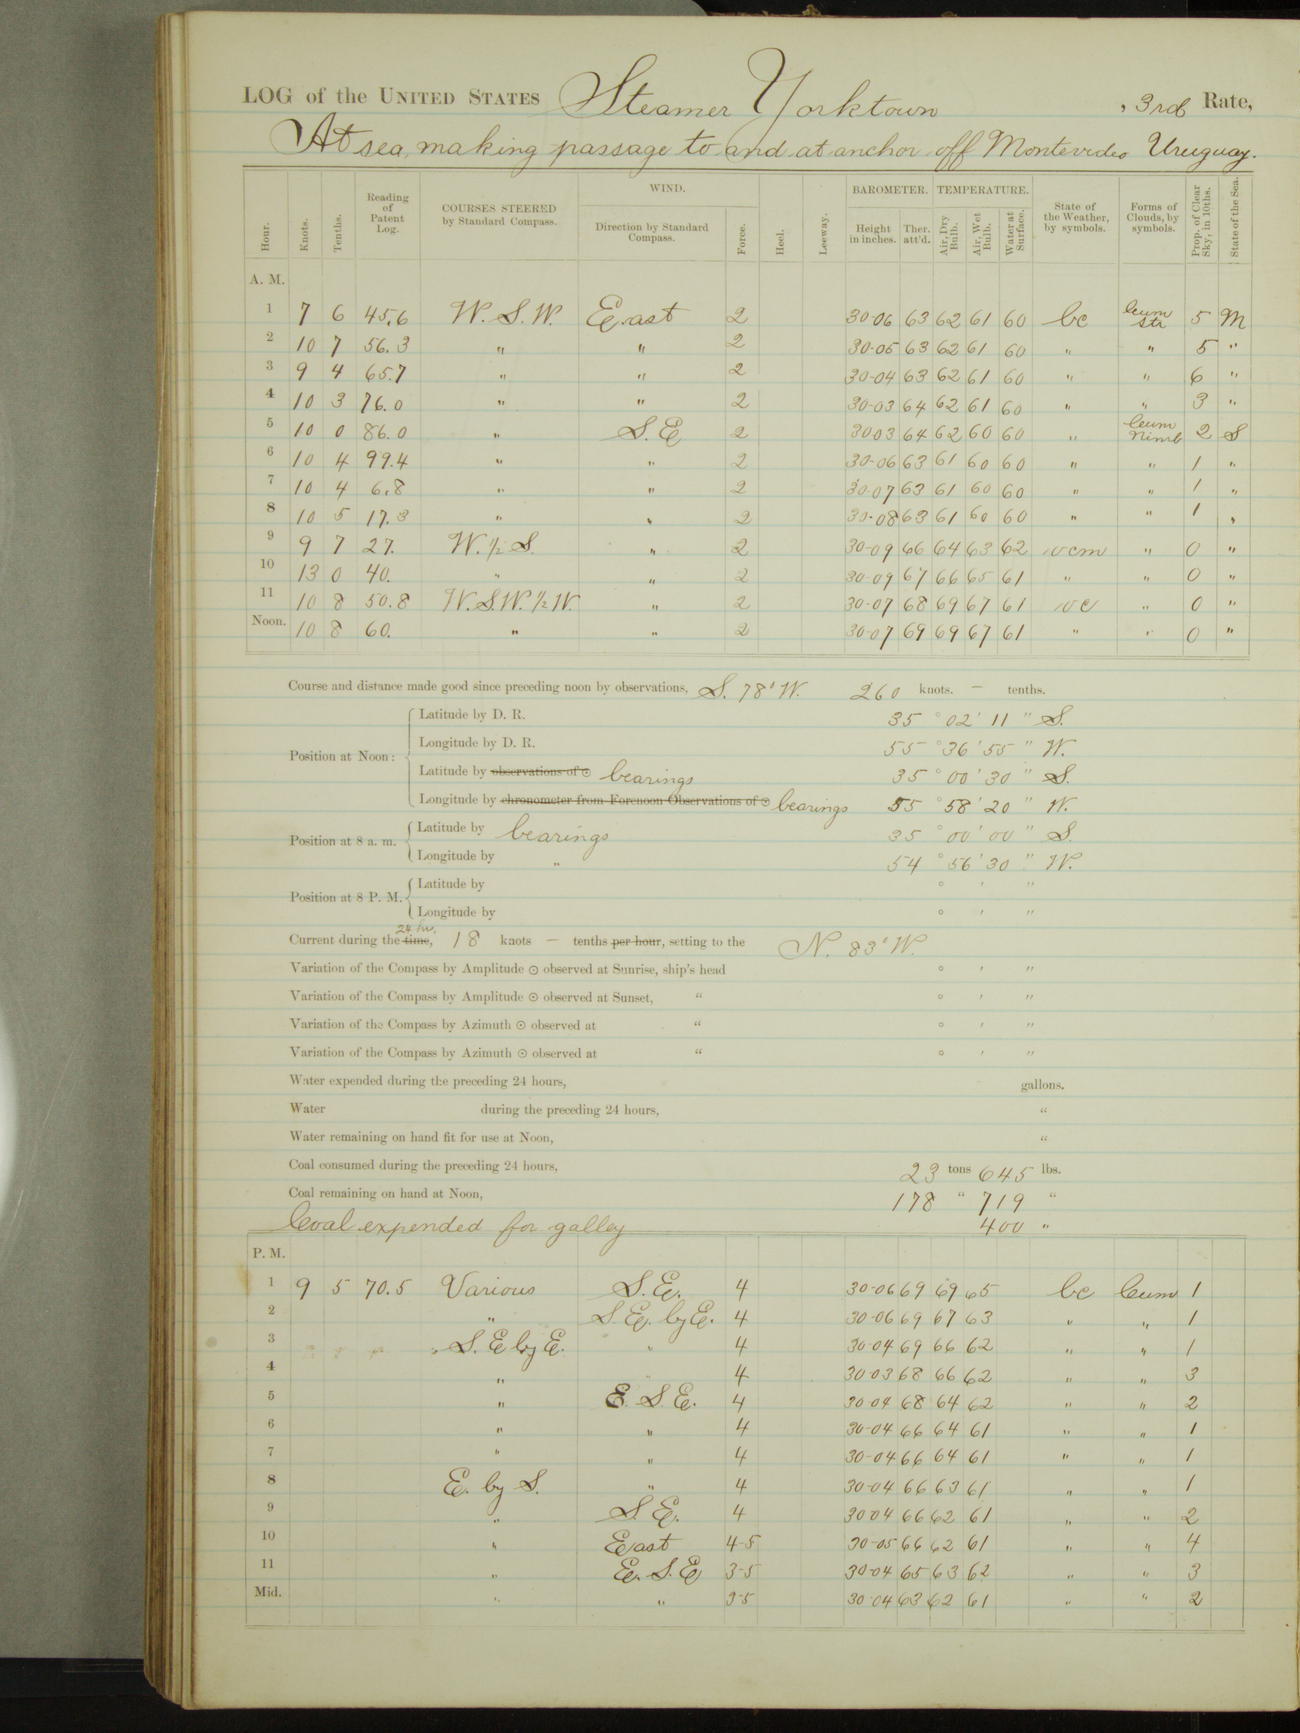 LOG of the UNITED STATES Steamer Yorktown, 3rd Rate,
At sea, making passage to and at anchor off Montevideo Uruguay.
Hour. Knots. Tenths. Reading of Patent Log. COURSES STEERED by Standard Compass. WIND. Direction by Standard Compass. Force. Heel. Leeway. BAROMETER. Height in inches. Ther. att'd. TEMPERATURE. Air, Dry Bulb. Air, Wet Bulb. Water at Surface. State of the Weather, by symbols. Forms of Clouds, by symbols. Prop. of Clear Sky, in 10ths. State of the Sea.
A. M.
1 7 6 45.6 W. S. W. East 2 30-06 63 62 61 60 bc Cum Str 5 M
2 10 7 56.3 " " 2 30-05 63 62 61 60 " " 5 "
3 9 4 65.7 " " 2 30-04 63 62 61 60 " " 6 "
4 10 3 76.0 " " 2 30-03 64 62 61 60 " " 3 "
5 10 0 86.0 " S. E 2 30 03 64 62 60 60 " Cum Nimb 2 S
6 10 4 99.4 " " 2 30-06 63 61 60 60 " " 1 "
7 10 4 6.8 " " 2 30-07 63 61 60 60 " " 1 "
8 10 5 17.3 " " 2 30-08 63 61 60 60 " " 1 "
9 9 7 27. W. 1/2 S. " 2 30-09 66 64 63 62 ocm " 0 "
10 13 0 40. " " 2 30-09 67 66 65 61 " " 0 "
11 10 8 50.8 W. S. W. 1/2 W. " 2 30-07 68 69 67 61 oc " 0 "
Noon. 10 8 60. " " 2 30-07 69 69 67 61 " " 0 "
Course and distance made good since preceding noon by observations, S. 78° W. 260 knots. — tenths.
Position at Noon: Latitude by D. R. 35 ° 02 ' 11 " S.
Longitude by D. R. 55 ° 36 ' 55 " W.
Latitude by observations of ☉ bearings 35 ° 00 ' 30 " S.
Longitude by chronometer from Forenoon Observations of ☉ bearings 55 ° 58 ' 20 " W.
Position at 8 a. m. Latitude by bearings 35 ° 00 ' 00 " S.
Longitude by " 54 ° 56 ' 30 " W.
Position at 8 P. M. Latitude by ° ' "
Longitude by ° ' "
Current during the time, 24 hr. 18 knots — tenths per hour, setting to the N. 83° W.
Variation of the Compass by Amplitude ☉ observed at Sunrise, ship's head ° ' "
Variation of the Compass by Amplitude ☉ observed at Sunset, " ° ' "
Variation of the Compass by Azimuth ☉ observed at " ° ' "
Variation of the Compass by Azimuth ☉ observed at " ° ' "
Water expended during the preceding 24 hours, gallons.
Water during the preceding 24 hours, "
Water remaining on hand fit for use at Noon, "
Coal consumed during the preceding 24 hours, 23 tons 645 lbs.
Coal remaining on hand at Noon, 178 " 719 "
Coal expended for galley 400 "
P. M.
1 9 5 70.5 Various S. E. 4 30-06 69 69 65 bc Cum 1
2 " S. E. by E. 4 30-06 69 67 63 " " 1
3 S. E by E. " 4 30-04 69 66 62 " " 1
4 " " 4 30-03 68 66 62 " " 3
5 " E. S. E. 4 30 04 68 64 62 " " 2
6 " " 4 30-04 66 64 61 " " 1
7 " " 4 30-04 66 64 61 " " 1
8 E. by S. " 4 30-04 66 63 61 " " 1
9 " S. E. 4 30 04 66 62 61 " " 2
10 " East 4-5 30-05 66 62 61 " " 4
11 " E. S. E 3-5 30-04 65 63 62 " " 3
Mid. " " 3-5 30-04 63 62 61 " " 2